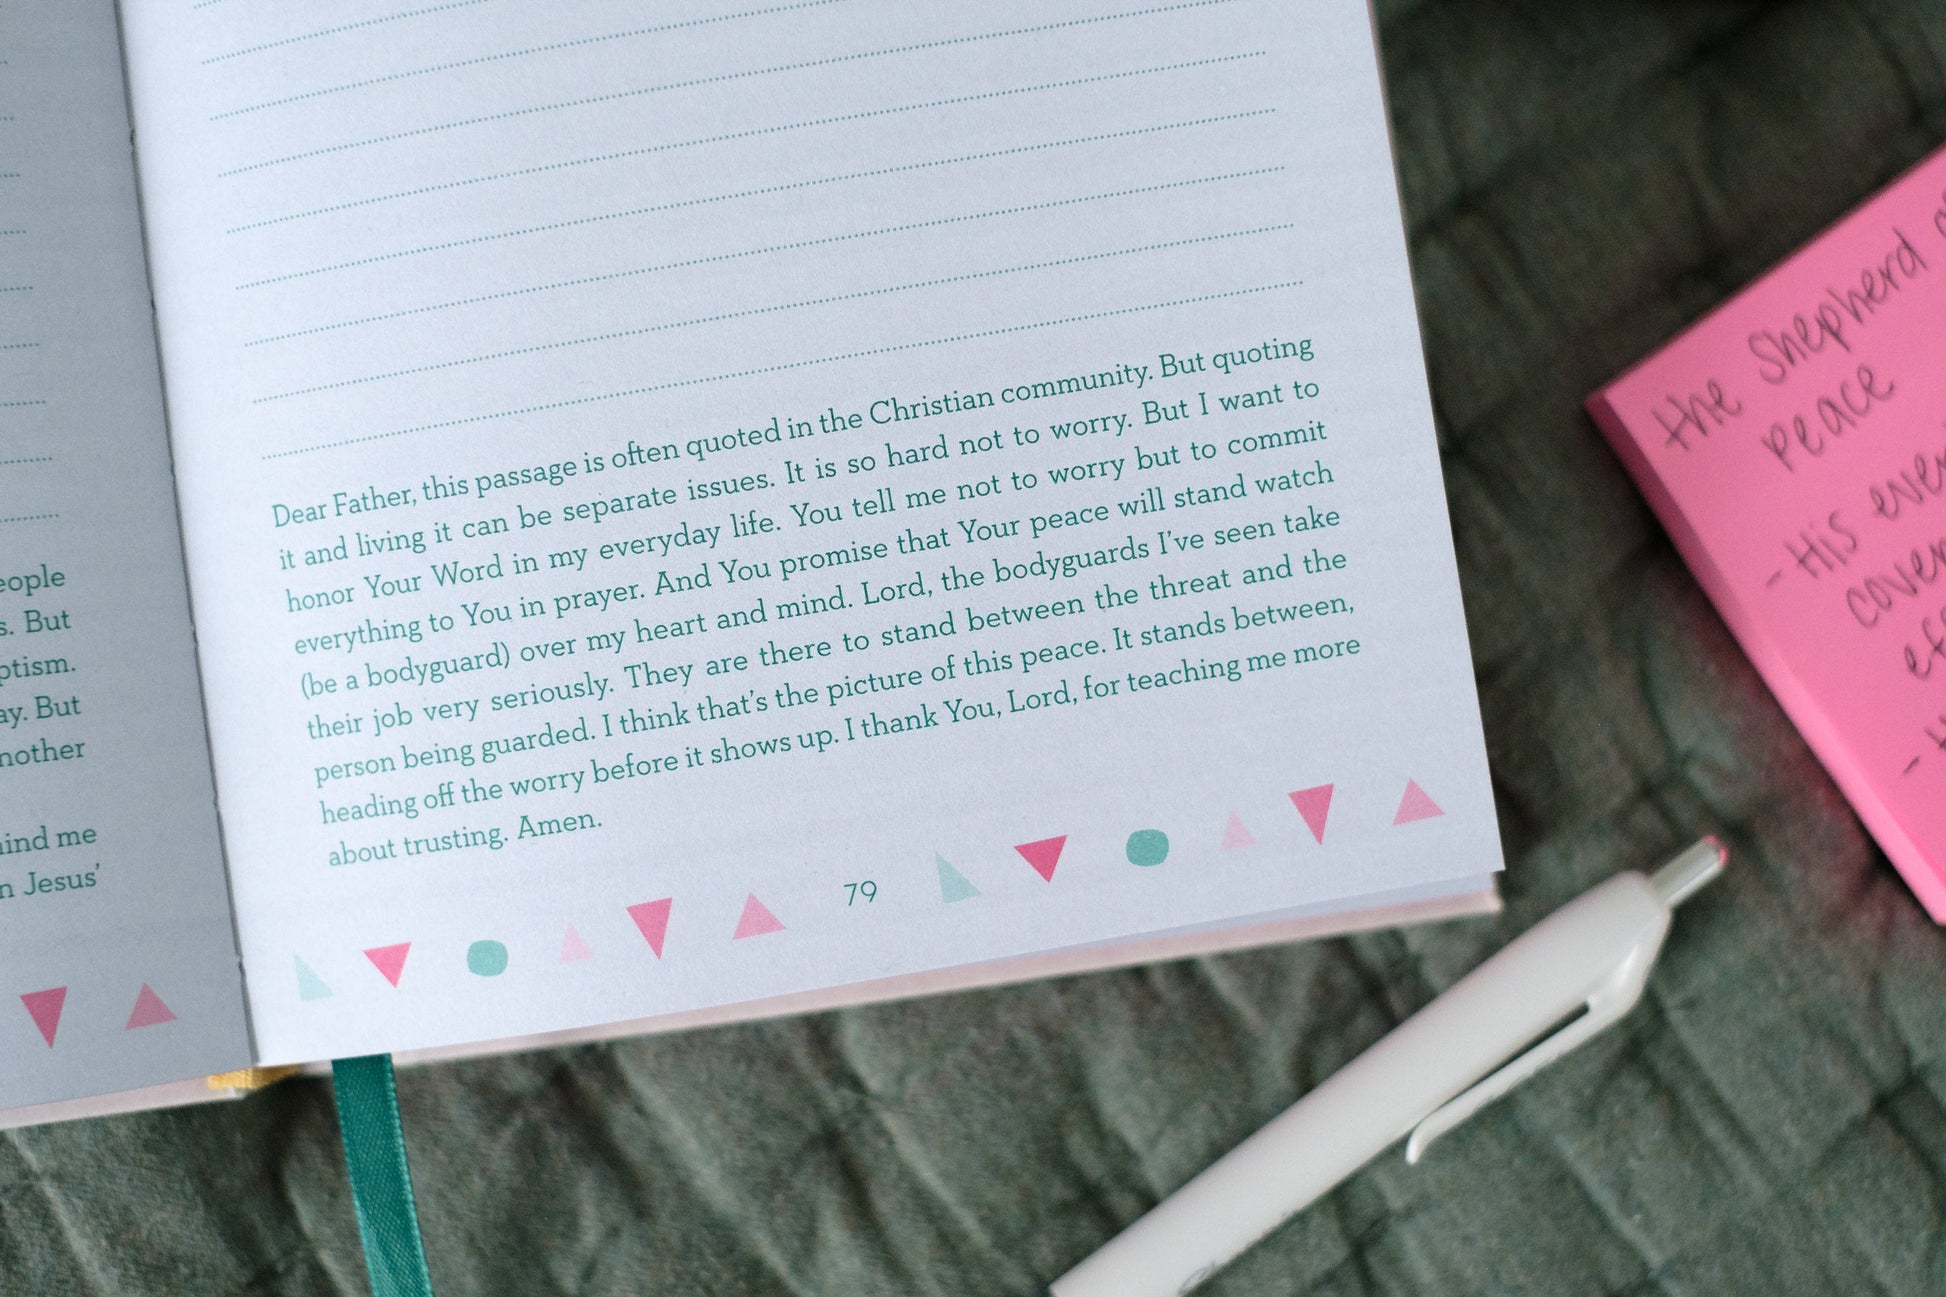 But
ay. But
mind me
Jesus'
Dear Father, this passage is often quoted in the Christian community. But quoting
it and living it can be separate issues. It is so hard not to worry. But I want to
honor Your Word in my everyday life. You tell me not to worry but to commit
everything to You in prayer. And You promise that Your peace will stand watch
(be a bodyguard) over my heart and mind. Lord, the bodyguards I've seen take
their job very seriously. They are there to stand between the threat and the
person being guarded. I think that's the picture of this peace. It stands between,
heading off the worry before it shows up. I thank You, Lord, for teaching me more
about trusting. Amen.
79
the Shepherd
peace
- His